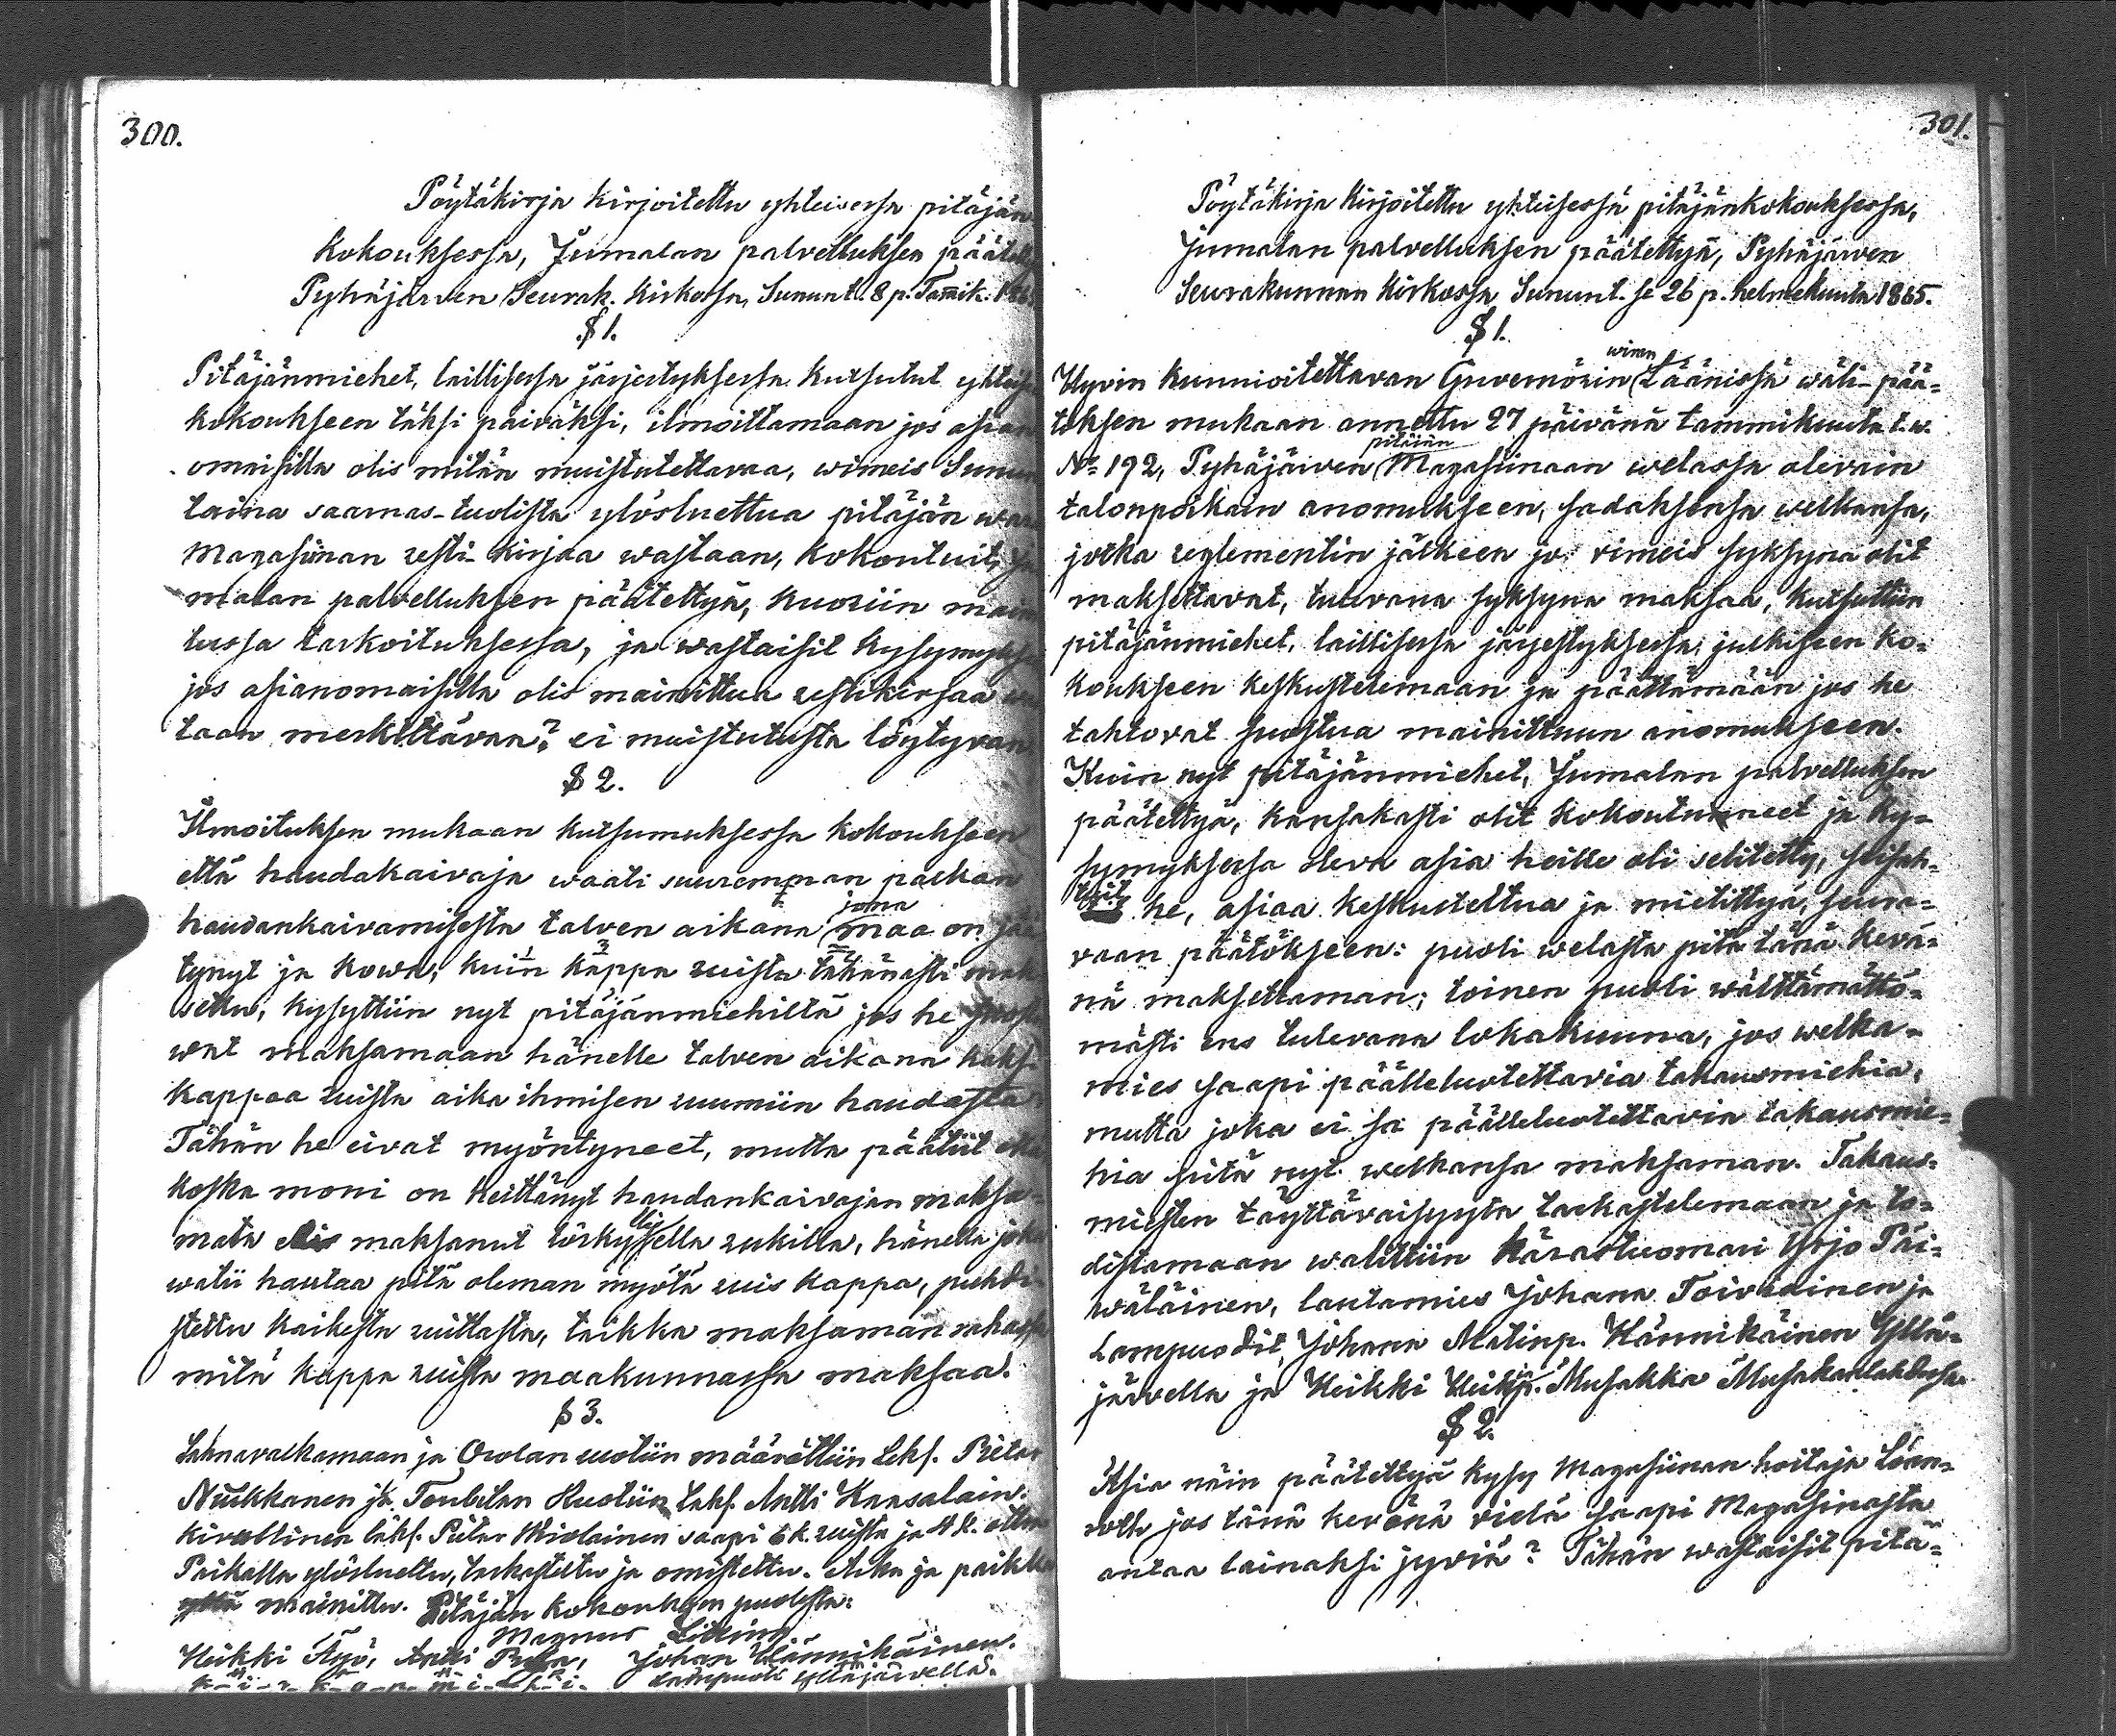 300.
Pöytäkirja kirjoitettu yhteisessa pitäjän
kokouksessa, Jumalan palvelluksen päätett
Pyhäjärven Seurak. kirkossa, Sununt. 8 p. Tammik. 186
§ 1.
Pitäjänmiehet, laillisessa järjestyksessa kutsutut yhteise
kokoukseen täksi päiväksi, ilmoittamaan jos asian
omaisilla olis mitän muistutettavaa, wimeis Sunun
taina saarnas-tuolista ylösluettua pitäjän wa
Magasiinan resti-kirjaa wastaan, kokontuit, Ju
malan palvelluksen päätettyä, kuoriin main
tussa tarkoituksessa, ja wastaisit kysymyks
jos asianomaisilla olis mainittua restikirjaa w
taan merkittävan? ei muistutusta löytyvan
§ 2.
Ilmoituksen mukaan kutsumuksessa kokoukseen
että haudakaivaja waati suuremman palkan
haudankaivamisesta talven aikana joma maa on jää
tynyt ja kowa, kuin kappa ruista tähänasti mak
settu, kysyttiin nyt pitäjänmiehiltä jos he suostu
wat maksamaan hänelle talven aikana kaksi
kappaa ruista aika ihmisen ruumiin haudasta
Tähän he eivat myöntyneet, mutta päätiit että
koska moni on heittänyt haudankaivajan maksa-
mata eli maksanut törkysella rukilla, hänella joka
watii hautaa pitä oleman myötä ruis kappa, puhdi-
stettu kaikesta ruittasta, taikka maksaman rahassa
mitä kappa ruista maakunnassa maksaa.
§ 3.
Lahnavalkamaan ja Orolan ruotiin määrättiin Lehf. Pietar
Nukkanen ja Toubilan Ruotiin lahf. Antti Kaasalain.
kivallinen lähf. Pietar Miolainen saapi 6 k. ruista ja 4 R. 
Paikalla ylösluettu, tarkastettu ja omistettu. Aika ja paikka
yllä mainittu. Pitäjän kokouksen puolesta:
Magnus
Heikki Äyjö, Antti Johan Hännikäinen.
lampuoti Ylläjärvella.
301.
Pöytäkirja kirjoitettu yhteisessä pitäjänkokouksessa,
Jumalan palvelluksen päätettyä, Pyhäjärven
Seurakunnan kirkossa Sununt. se 26 p. helmekuuta 1865.
§ 1.
Hyvin kunnioitettavan Guvernörin wiran Läänissä wäli-pää-
töksen mukaan annettu 27 päivänä tammikuuta t.w.
No 192, Pyhäjärven pitäjän Magasiinaan welassa olevain
talonpoikain anomukseen, sadaksensa welkansa,
jotka reglementin jälkeen jo vimeis syksyna olit
maksettavat, tulevana syksyna maksaa, kutsuttiin
pitäjänmiehet, laillisessa järjestyksessa, julkiseen ko-
koukseen keskustelemaan ja päättämään jos he
tahtovat suostua mainittuun anomukseen.
Kuin nyt pitäjänmiehet, Jumalan palvelluksen
päätettyä, kansakasti olit kokontunneet ja ky-
symyksessa oleva asia heille oli selitetty, seisah-
tuit he, asiaa keskusteltua ja mietittyä, seura-
vaan päätökseen: puoli welasta pitä tänä kevä-
nä maksettaman; toinen puoli wälttämättö-
mästi ens tulevana lokakuuna, jos welka-
mies saapi päälleluotettavia takausmiehia,
mutta joka ei sa päälleluotettavia takausmie-
hia pitä nyt welkansa maksaman. Takaus-
miesten täyttäväisyyta tarkastelemaan ja to-
distamaan walittiin kärastuomari Yrjo Päi-
wäläinen, lautamies Johana Toiviainen ja
Lampuodit, Johana Matinp. Hännikäinen Yllä-
järvella ja Heikki Heikp. Musakka Musakanlahdessa.
§ 2.
Asia näin päätettyä kysy Magasiinan hoitaja Lörn-
roth jos tänä kevänä vielä saapi Magasinasta
antaa lainaksi jyviä? Tähän wastaisit pitä-